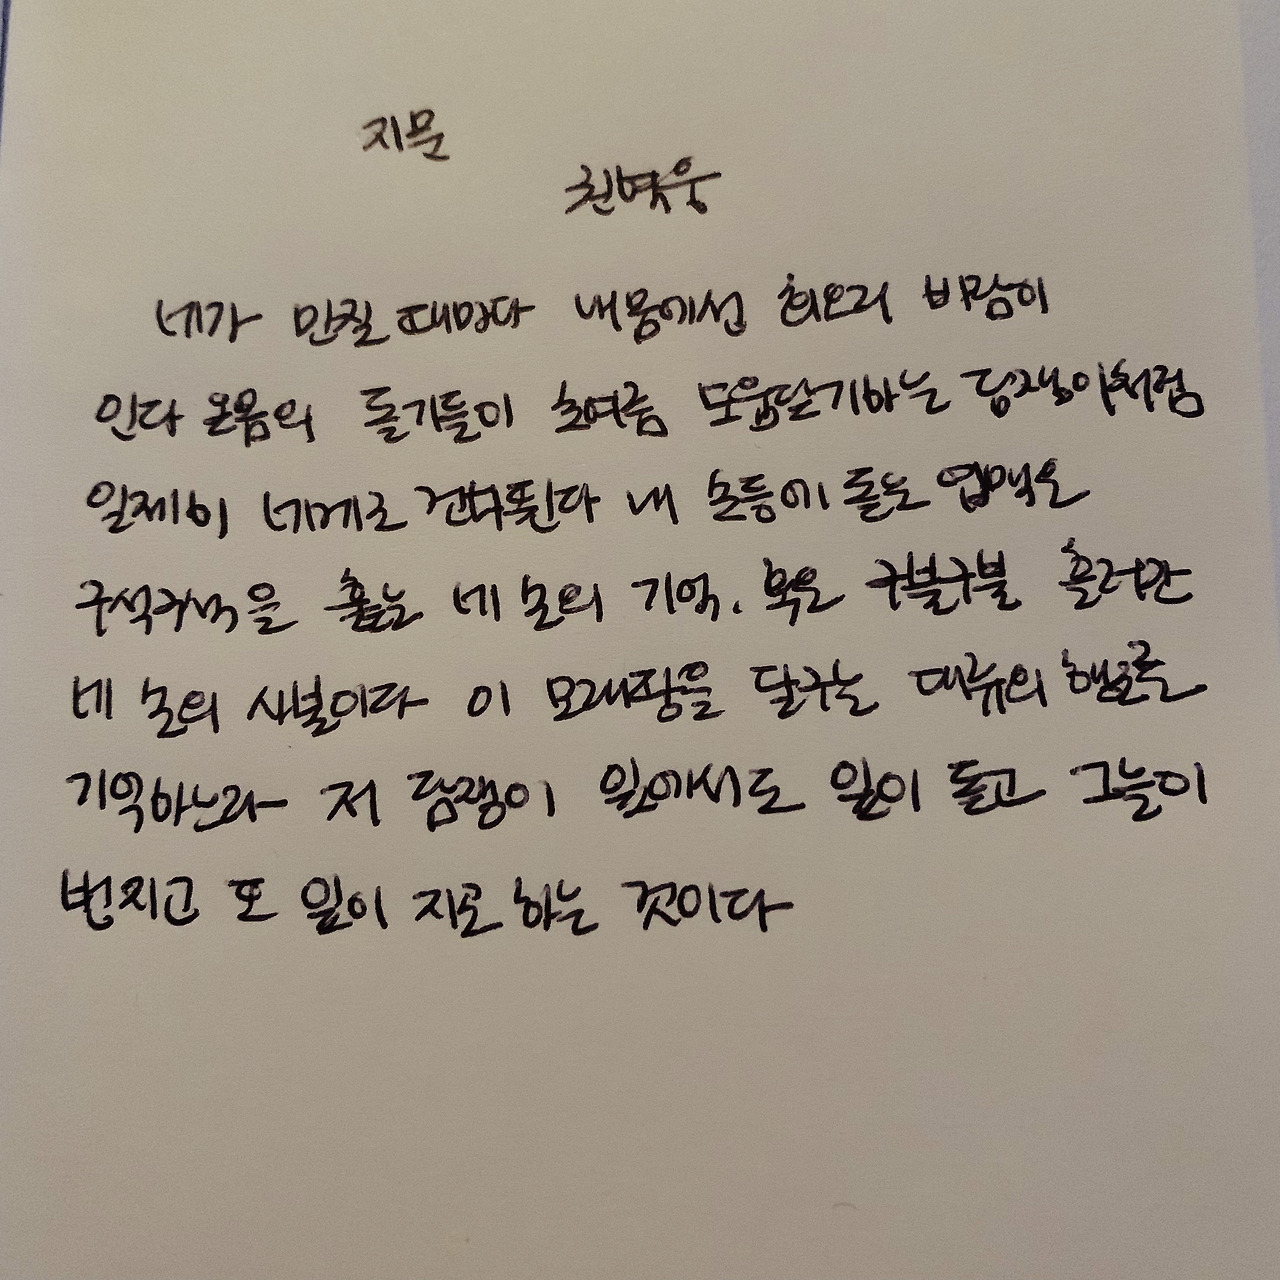 지문
권혁웅
네가 만질 때마다 내 몸에선 회오리 바람이
인다 온몸의 돌기들이 초여름 도움닫기하는 담쟁이처럼
일제히 네게로 건너뛴다 내 손등에 돋는 엽맥은
구석구석을 훑는 네 손의 기억, 혹은 구불구불 흘러간
네 손의 사본이다 이 모래땅을 달구는 대류의 행로를
기억하느라 저 담쟁이 잎에서도 잎이 돋고 그늘이
번지고 또 잎이 지곤 하는 것이다